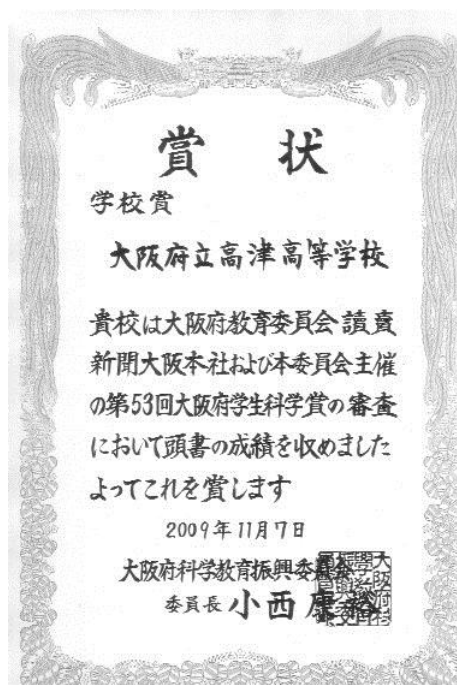 賞状
学校賞
大阪府立高津高等学校
貴校は大阪府教育委員会讀賣
新聞大阪本社および本委員会主催
の第53回大阪府学生科学賞の審査
において頭書の成績を収めました
よってこれを賞します
2009年11月7日
大阪府科学教育振興委員会
委員長 小西康裕